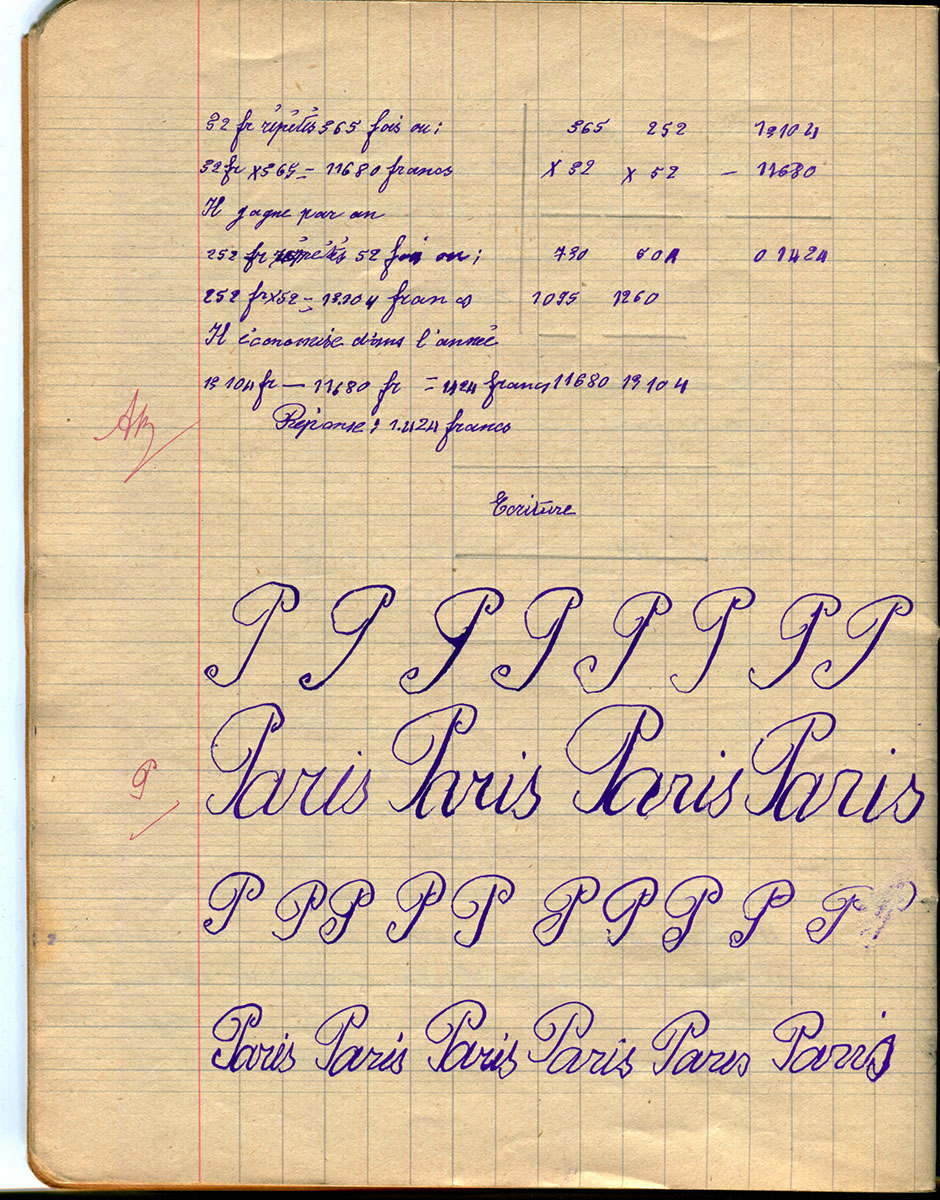 32 fr répétés 365 fois ou;
32 fr x 365 = 11680 francs
Il gagne par an
252 fr répétés 52 fois ou;
252 fr x 52 = 13104 francs
Il économise dans l'année
13104 fr — 11680 fr = 1424 francs
Réponse: 1.424 francs
365 252 13104
x 32 x 52 — 11680
730 504 01424
1095 1260
11680 13104
Ecriture
P P P P P P P P
Paris Paris Paris Paris
P P P P P P P P P P P
Paris Paris Paris Paris Paris Paris